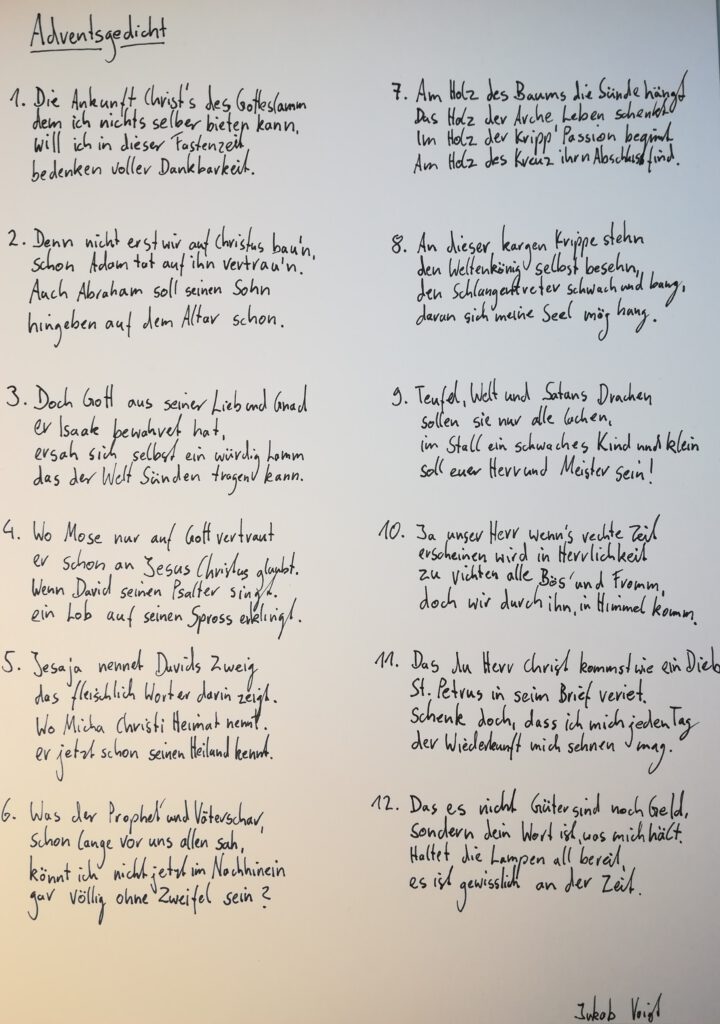 Adventsgedicht
1. Die Ankunft Christ's des Gotteslamm
dem ich nichts selber bieten kann,
will ich in dieser Fastenzeit,
bedenken voller Dankbarkeit.
2. Denn nicht erst wir auf Christus bau'n,
schon Adam tat auf ihn vertrau'n.
Auch Abraham soll seinen Sohn
hingeben auf dem Altar schon.
3. Doch Gott aus seiner Lieb und Gnad
er Isaak bewahret hat,
ersah sich selbst ein würdig Lamm
das der Welt Sünden tragen kann.
4. Wo Mose nur auf Gott vertraut
er schon an Jesus Christus glaubt.
Wenn David seinen Psalter singt.
ein Lob auf seinen Spross erklingt.
5. Jesaja nennet Davids Zweig
das fleischlich Wort er darin zeigt.
Wo Micha Christi Heimat nennt.
er jetzt schon seinen Heiland kennt.
6. Was der Prophet' und Väterschar,
schon lange vor uns allen sah,
könnt ich nicht jetzt im Nachhinein
gar völlig ohne Zweifel sein?
7. Am Holz des Baums die Sünde hängt
Das Holz der Arche Leben schenkt
Im Holz der Kripp' Passion beginnt
Am Holz des Kreuz ihrn Abschluss find.
8. An dieser kargen Krippe stehn
den Weltenkönig selbst besehn,
den Schlangentreter schwach und bang,
daran sich meine Seel mög hang.
9. Teufel, Welt und Satans Drachen
sollen sie nur alle lachen,
im Stall ein schwaches Kind und klein
soll euer Herr und Meister sein!
10. Ja unser Herr wenn's rechte Zeit
erscheinen wird in Herrlichkeit
zu richten alle Bös' und Fromm,
doch wir durch ihn, in Himmel komm.
11. Das du Herr Christ kommst wie ein Dieb
St. Petrus in seim Brief veriet.
Schenk doch, dass ich mich jeden Tag
der Wiederkunft mich sehnen mag.
12. Das es nicht Güter sind noch Geld,
sondern dein Wort ist, was mich hält.
Haltet die Lampen all bereit,
es ist gewisslich an der Zeit.
Jakob Voigt